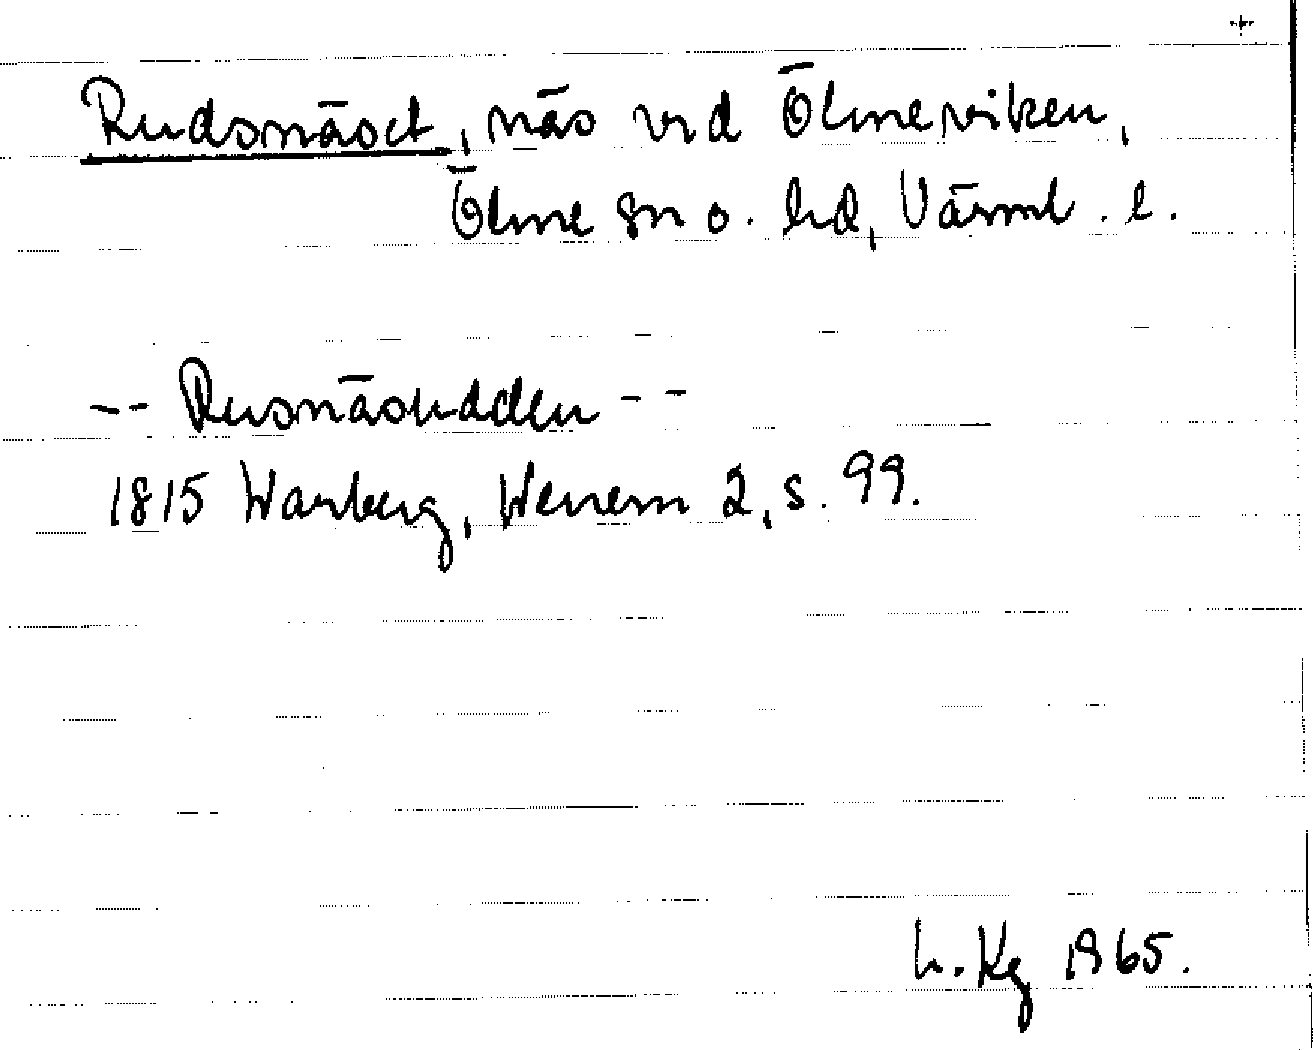 Rudsnäset, näs vid Ölmeviken,
Ölme sn o. hd, Värml. l.
-- Rusnäsudden --
1815 Warberg, Wenern 2, s. 99.
L. Kg 1965.